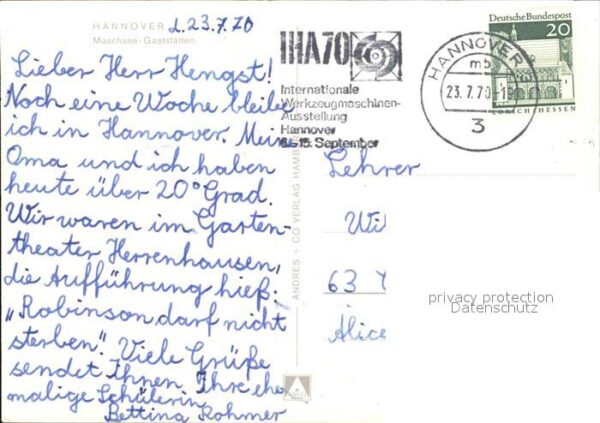 HANNOVER d. 23.7.70
Maschsee-Gaststätten
Lieber Herr Hengst!
Noch eine Woche bleibe
ich in Hannover. Meine
Oma und ich haben
heute über 20° Grad.
Wir waren im Garten-
theater Herrenhausen,
die Aufführung hieß:
„Robinson darf nicht
sterben". Viele Grüße
sendet Ihnen Ihre ehe-
malige Schülerin
Bettina Rohmer
ANDRES + CO VERLAG HAMB
IHA70
Internationale
Werkzeugmaschinen-
Ausstellung
Hannover
15. September
HANNOVER
mb
23.7.70
3
Deutsche Bundespost
20
LORSCH/HESSEN
Lehrer
Wil
63
Alice
privacy protection
Datenschutz